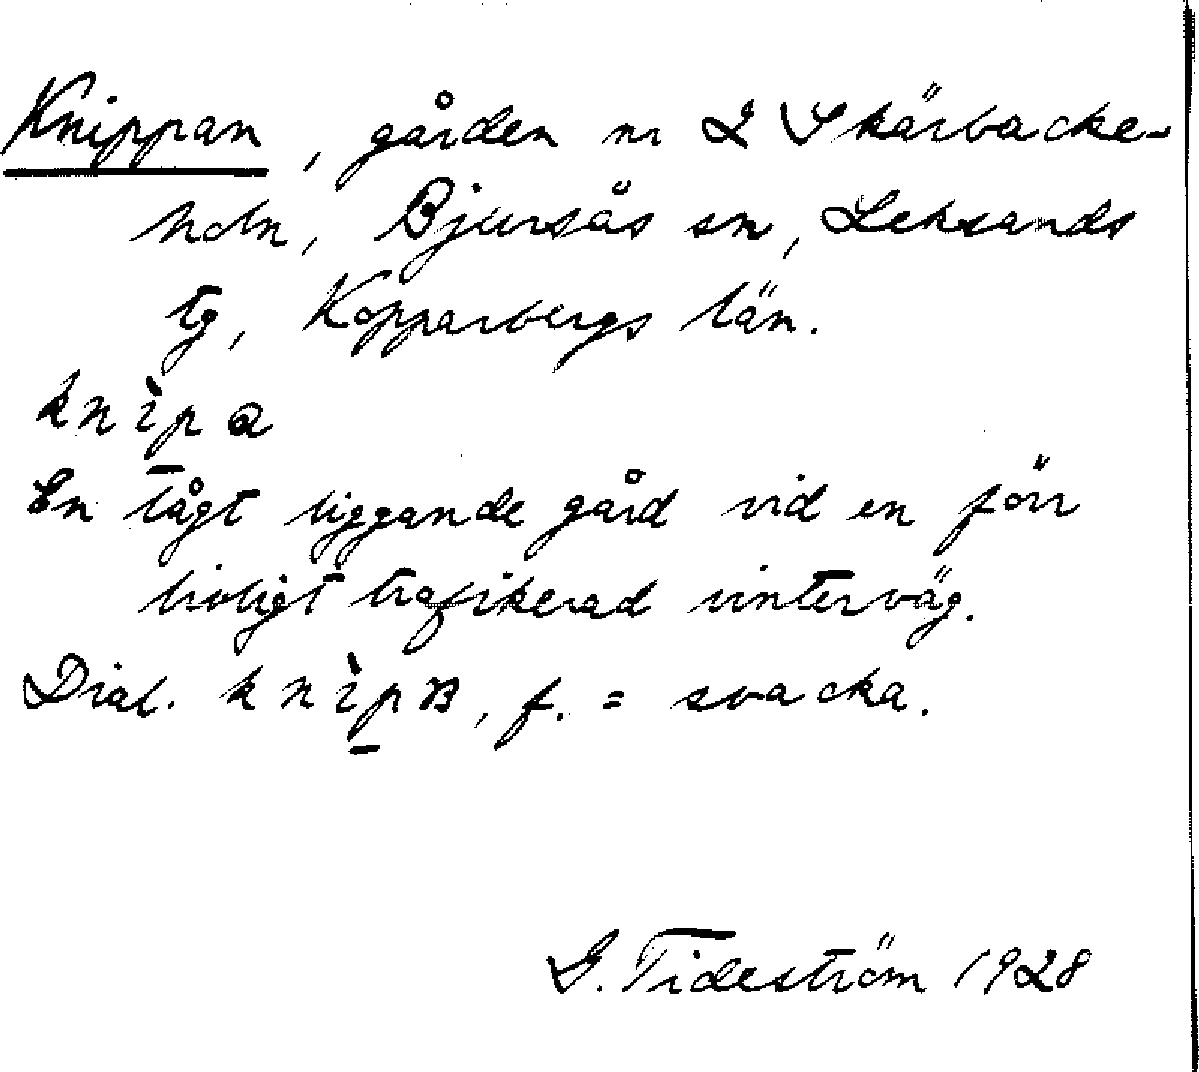 Knippan, gården nr 2 Skärbacke-
noln, Bjursås sn, Leksands
tg, Kopparbergs län.
knìpa
En lågt liggande gård vid en förr
livligt trafikerad vinterväg.
Dial. knìpα, f. = svacka.
G. Tideström 1928